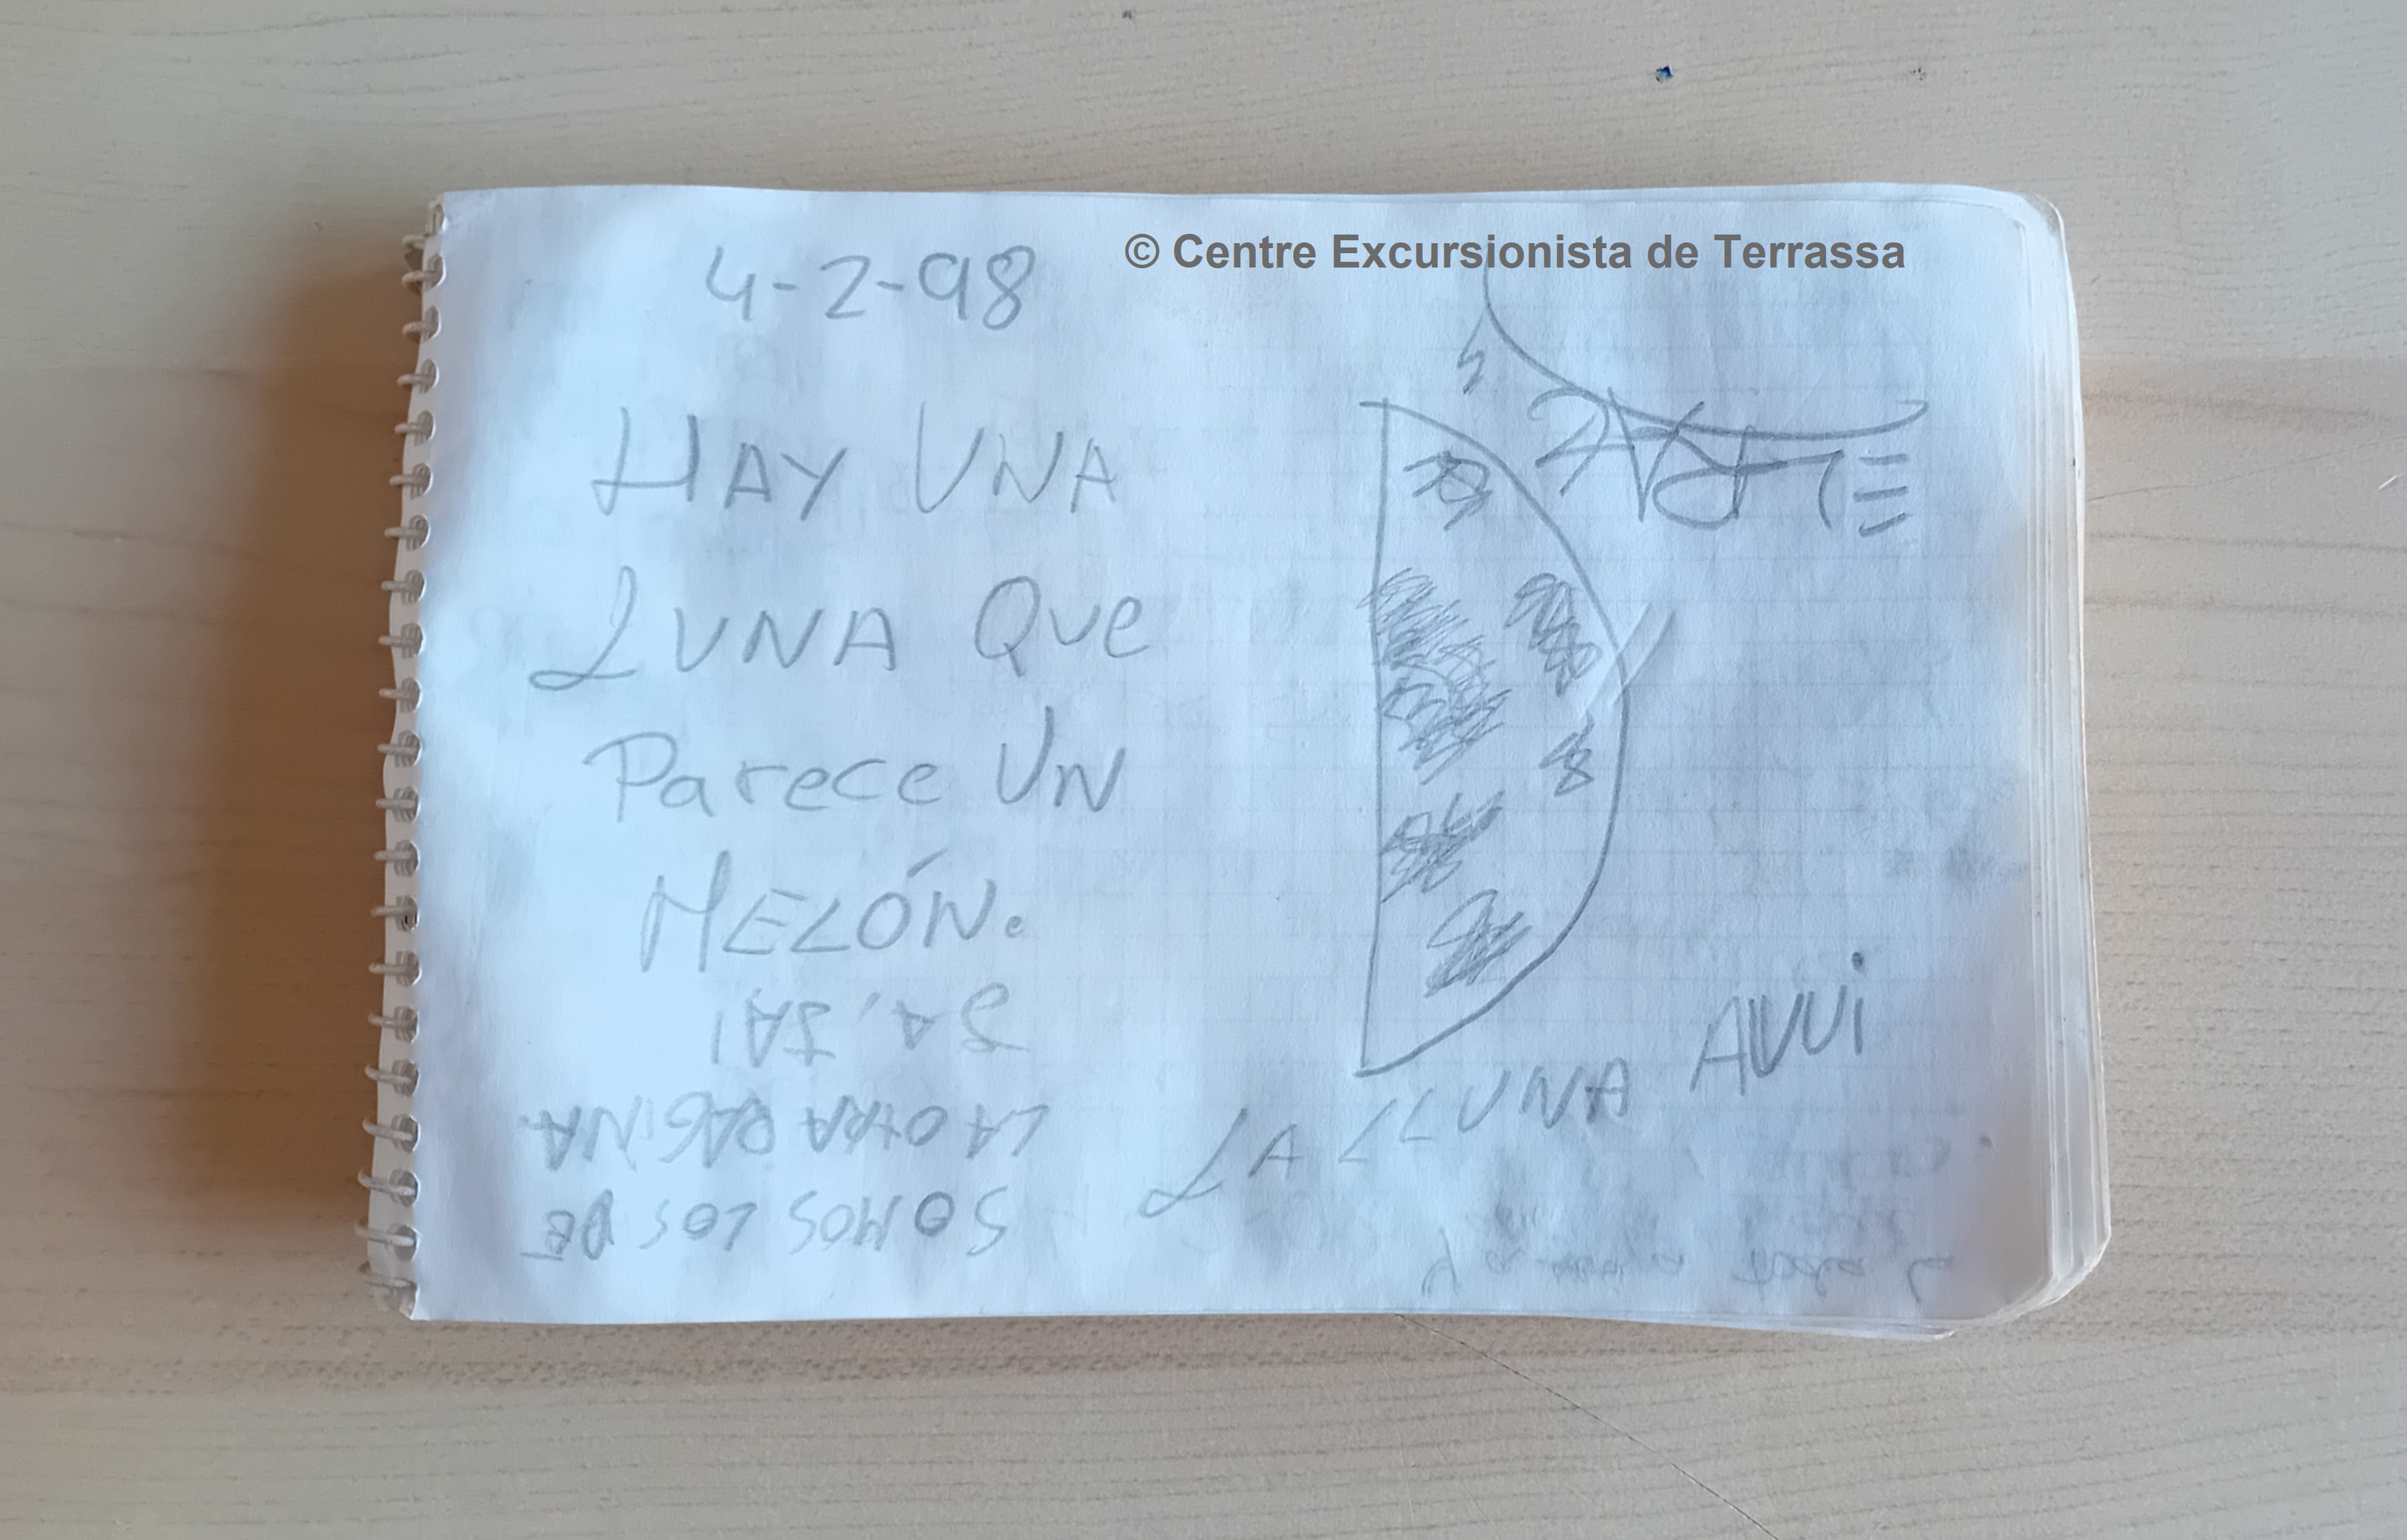 © Centre Excursionista de Terrassa
4-2-98
HAY UNA
LUNA QUE
Parece UN
MELÓN.
LA LLUNA AVUI
SOMOS LOS DE
LA OTRA PÁGINA.
JA, JA!